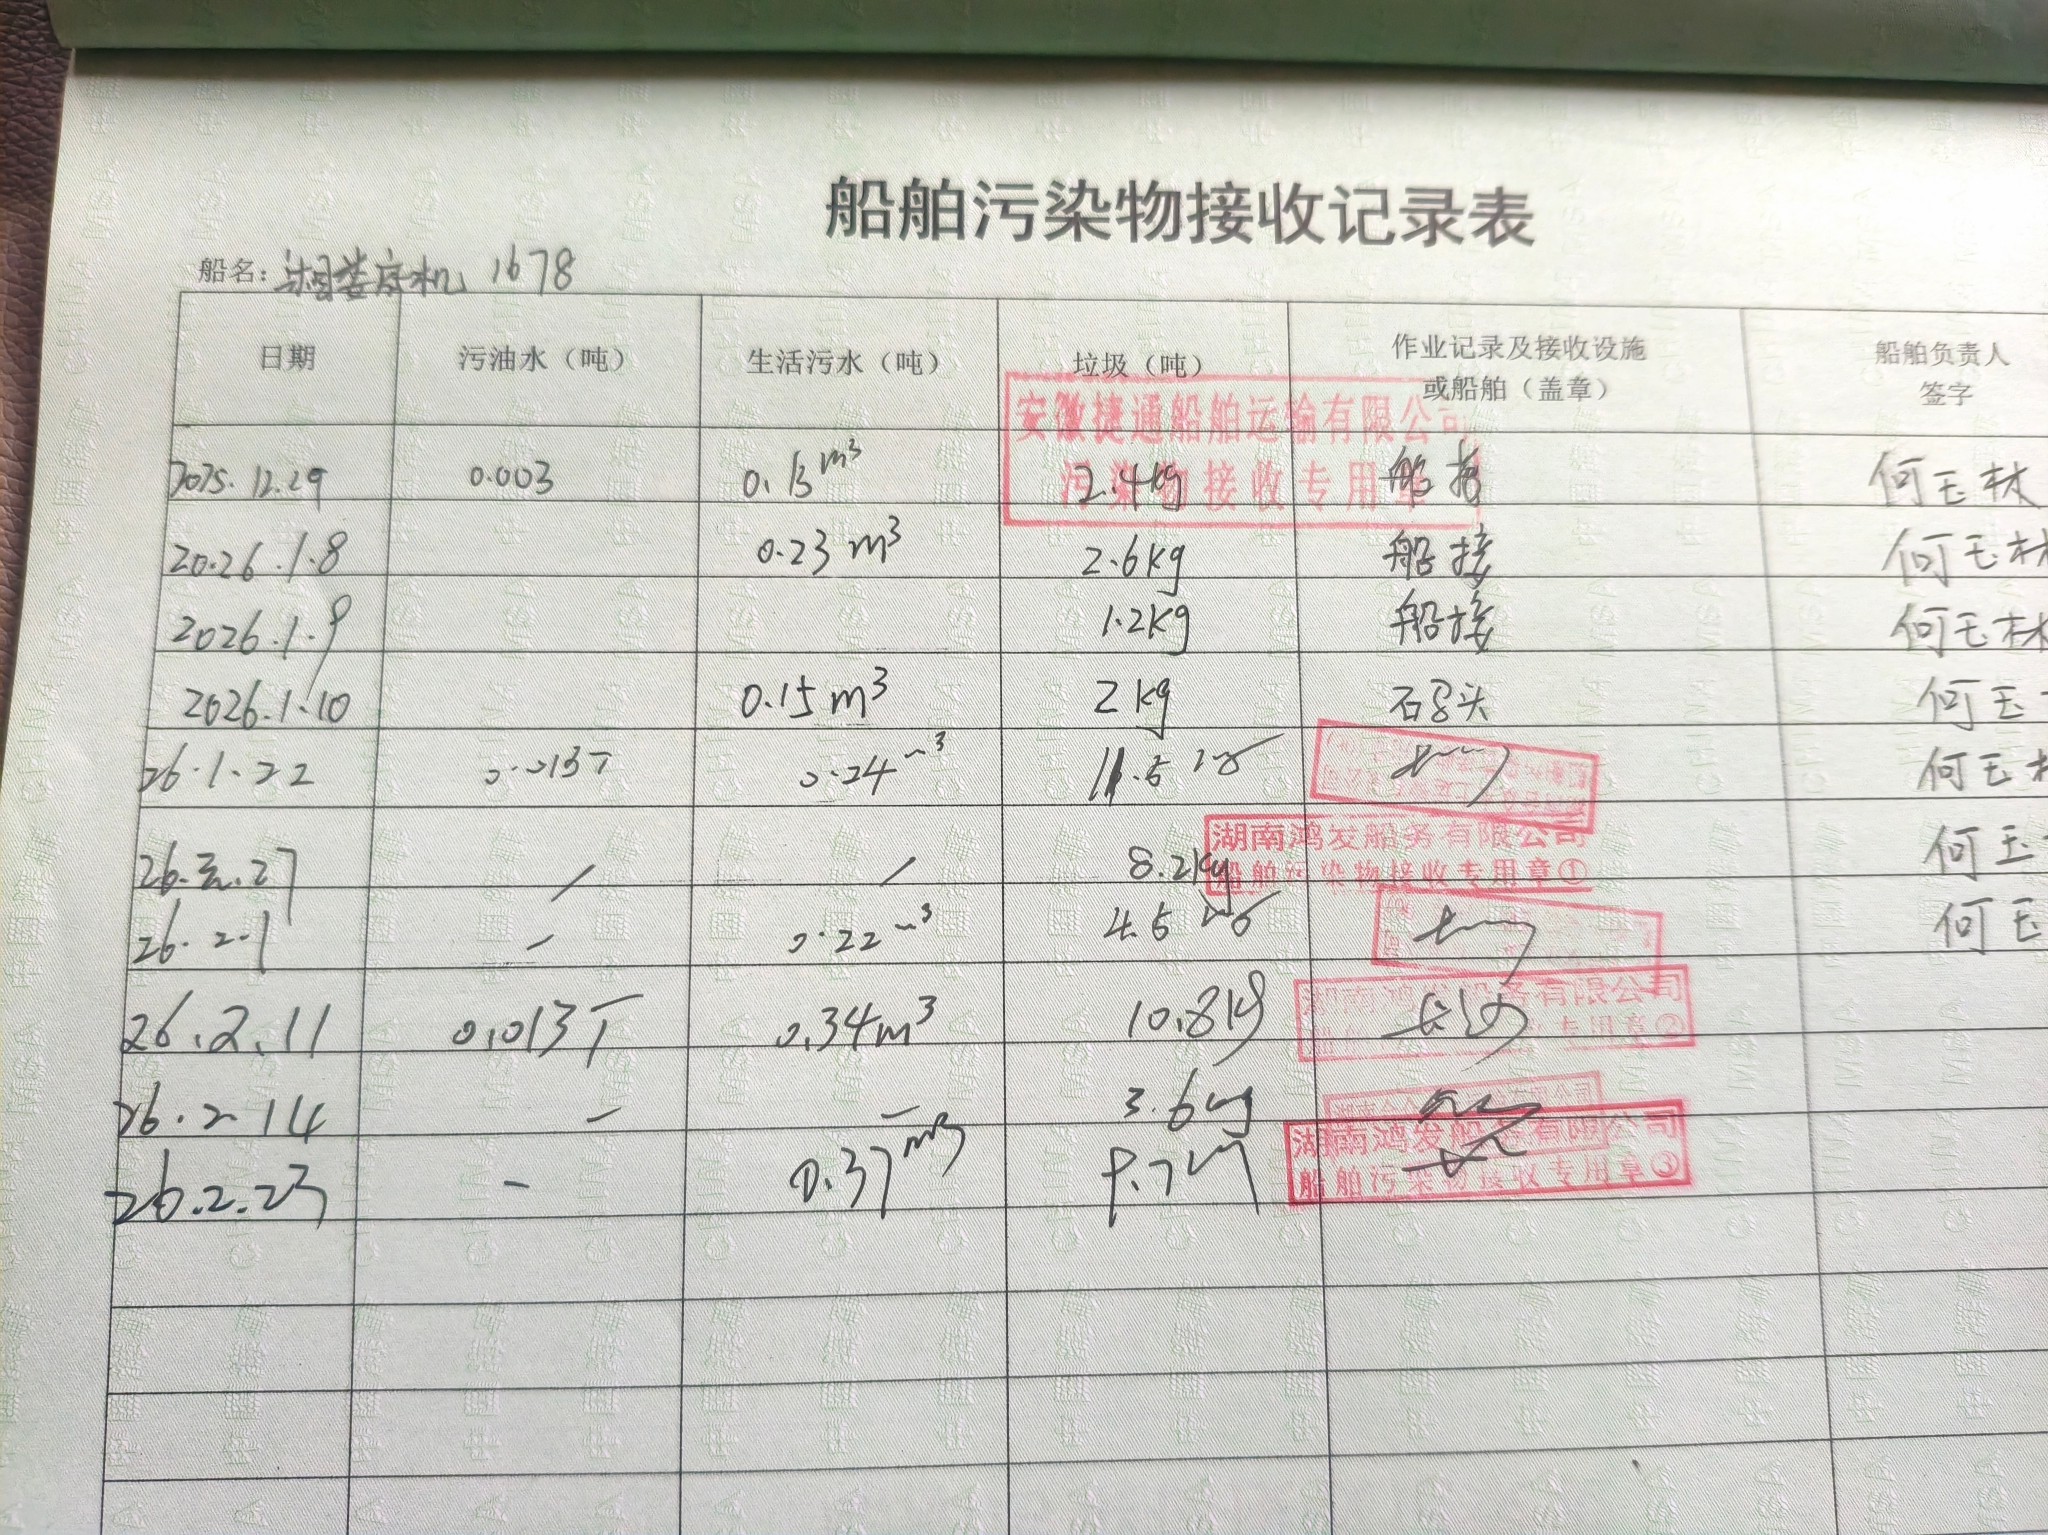 船舶污染物接收记录表
船名：湘娄底机 1678
日期 污油水（吨） 生活污水（吨） 垃圾（吨） 作业记录及接收设施或船舶（盖章） 船舶负责人签字
安徽捷通船舶运输有限公司
污染物接收专用章
2025.12.29 0.003 0.13m³ 2.4kg 船接 何玉林
2026.1.8 0.23m³ 2.6kg 船接 何玉林
2026.1.9 1.2kg 船接 何玉林
2026.1.10 0.15m³ 2kg 何玉
26.1.22 0.013T 0.24m³ 11.5 何玉林
湖南鸿发船务有限公司
船舶污染物接收专用章①
26.27 / / 8.2kg 何玉
26.2.1 - 0.22m³ 4.5 何玉
湖南鸿发船务有限公司
专用章②
26.2.11 0.013T 0.34m³ 10.8kg
26.2.14 - - 3.6kg
湖南鸿发船务有限公司
船舶污染物接收专用章③
26.2.23 - 0.37m³ 9.7kg